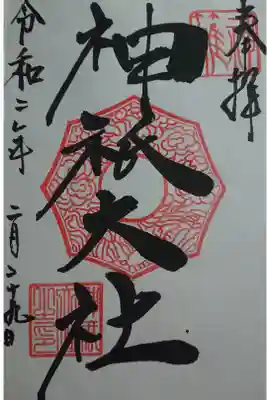 奉拝
神祇大社
令和二年
二月二十九日